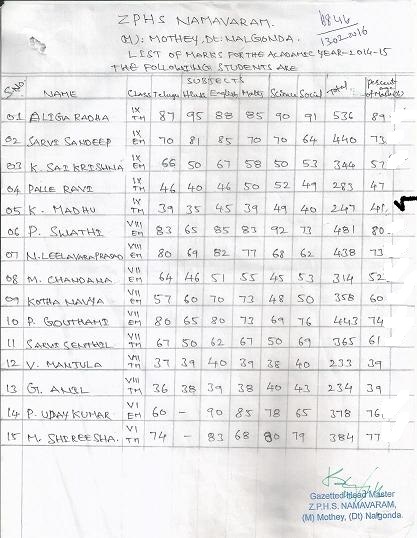 ZPHS NAMAVARAM.
(M): MOTHEY, Dt: NALGONDA.
LIST OF MARKS FOR THE ACADAMIC YEAR-2014-15
THE FOLLOWING STUDENTS ARE
SUBJECTS
S.No NAME Class Telugu Hindi English Maths Science Social Total percent of Marks
01 ALIGA RADHA IX TM 87 95 88 85 90 91 536 89
02 SARVI SANDEEP IX EM 70 81 85 70 70 64 440 73
03 K. SAI KRISHNA IX EM 66 50 67 58 50 53 344 57
04 PALLE RAVI IX TM 46 40 46 50 52 49 283 47
05 K. MADHU IX TM 39 35 45 39 49 40 247 41
06 P. SWATHI VIII EM 83 65 85 83 92 73 481 80
07 N. LEELAVARAPRASAD VIII EM 80 69 82 77 68 62 438 73
08 M. CHANDANA VIII TM 64 46 51 55 45 53 314 52
09 KOTHA NAVYA VIII EM 57 60 70 73 48 50 358 60
10 P. GOUTHAMI VIII EM 80 65 80 73 69 76 443 74
11 SARVI SENTHIL VII TM 67 50 62 67 50 69 365 61
12 V. MANTULA VII TM 37 39 40 39 38 40 233 39
13 G. ANIL VII TM 36 38 39 38 40 43 234 39
14 P. UDAY KUMAR VI EM 60 - 90 85 78 65 378 76
15 M. SHIREESHA. VI TM 74 - 83 68 80 79 384 77
Gazetted Head Master
Z.P.H.S. NAMAVARAM,
(M) Mothey, (Dt) Nalgonda.